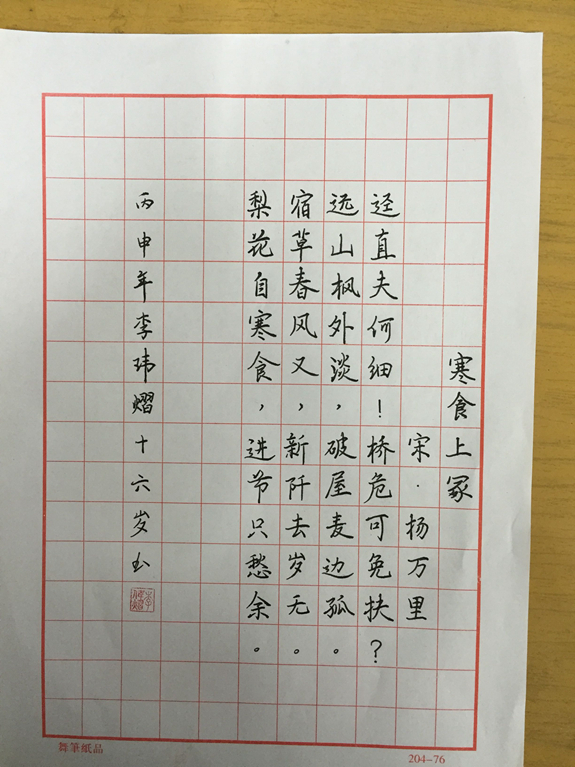 寒食上冢
宋·杨万里
迳直夫何细！桥危可免扶？
远山枫外淡，破屋麦边孤。
宿草春风又，新阡去岁无。
梨花自寒食，进节只愁余。
丙申年李玮熠十六岁书
舞筆纸品
204-76